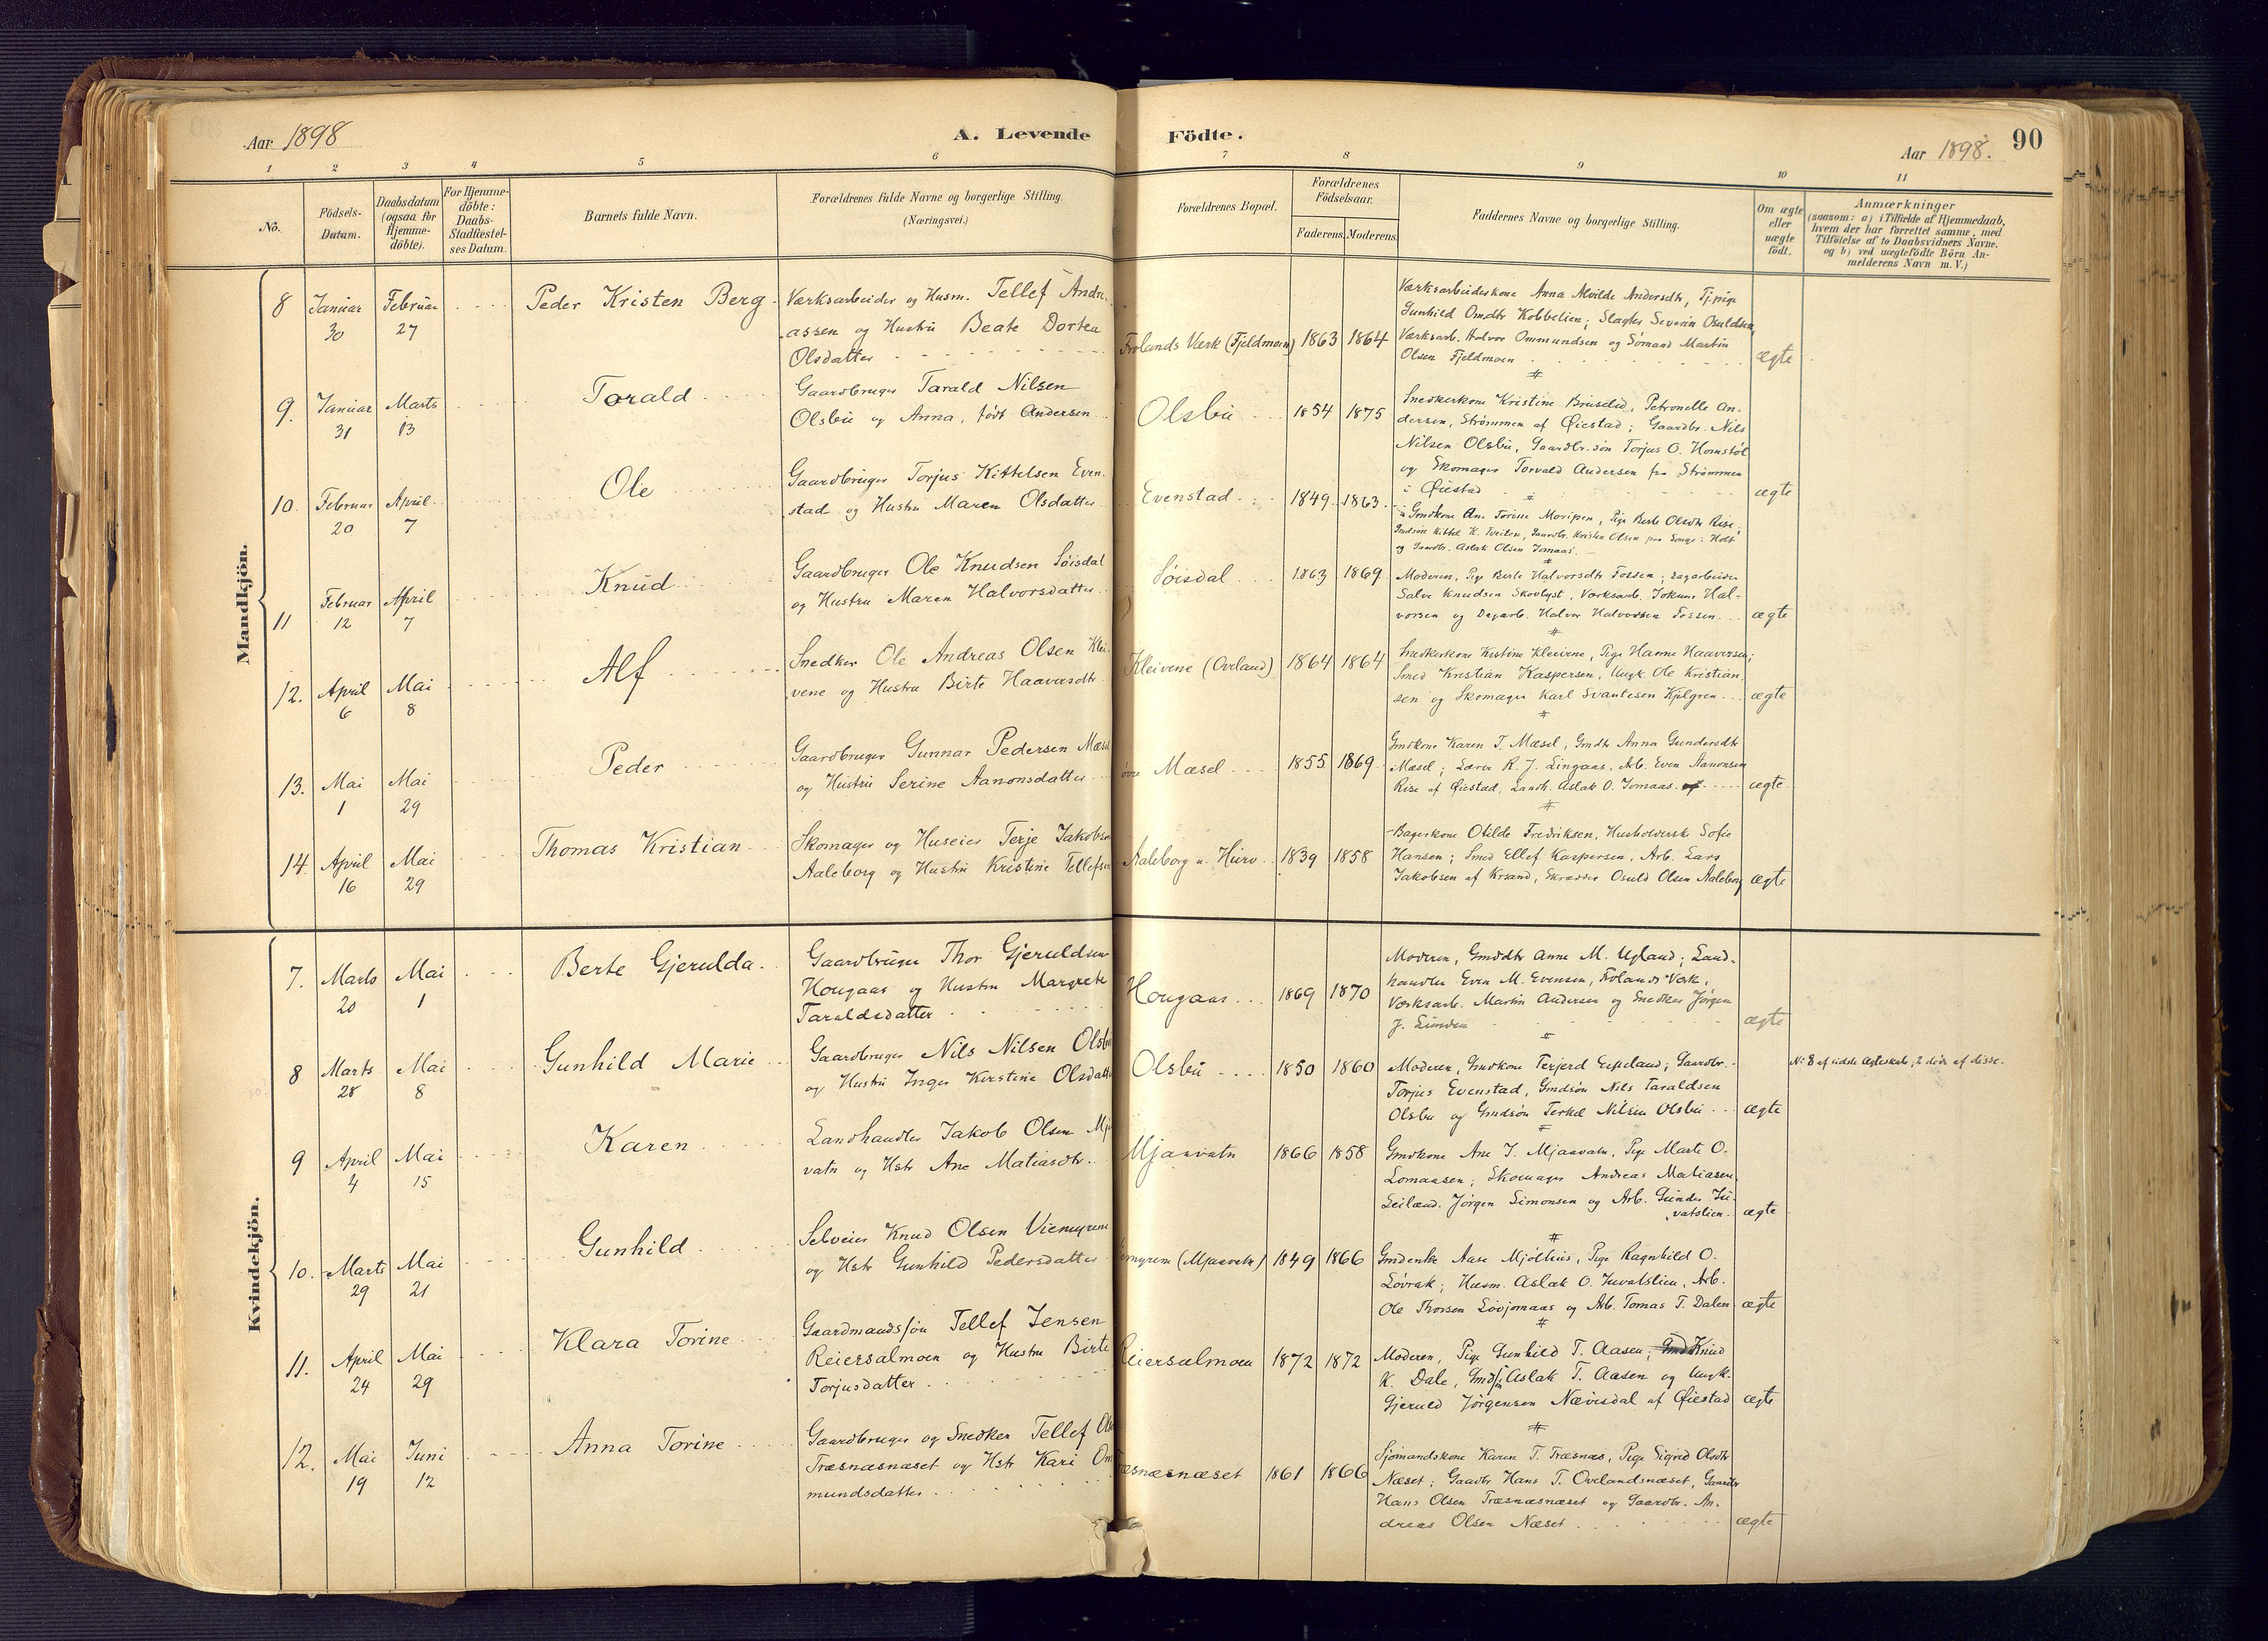 Aar 1898
A. Levende Födte.
Aar 1898. 90
1 2 3 4 5 6 7 8 9 10 11
No.
Födsels-
Datum.
Daabsdatum
(ogsaa for
Hjemme-
döbte).
For Hjemme-
döbte:
Daabs-
Stadfæstel-
ses Datum.
Barnets fulde Navn.
Forældrenes fulde Navne og borgerlige Stilling.
(Næringsvei.)
Forældrenes Bopæl.
Forældrenes
Födselsaar.
Faderens. Moderens.
Faddernes Navne og borgerlige Stilling.
Om ægte
eller
uægte
födt.
Anmærkninger
(saasom: a) i Tilfælde af Hjemmedaab,
hvem der har forrettet samme, med
Tilföielse af to Daabsvidners Navne.
og b) ved uægtefödte Börn An-
melderens Navn m.V.)
Mandkjön.
8 Januar 30 Februar 27 Peder Kristen Berg
Værksarbeider og Husm. Tellef Andre-
assen og Hustru Beate Dortea
Olsdatter
Frolands Værk (Fjeldmoen) 1863 1864
Værksarbeiderskone Anna Alvilde Andersdtr, Tj.pige
Gunhild Omdtr Kobbelien; Slagter Severin Osuldsen,
Værksarb. Halvor Ommundsen og Sømand Martin
Olsen Fjeldmoen
ægte
9. Januar 31 Marts 13 Torald
Gaardbruger Tarald Nilsen
Olsbu og Anna, født Andersen
Olsbu 1854 1875
Snedkerkone Kristine Brusdid, Petronelle An-
dersen, Strømmen af Øiestad; Gaardbr. Nils
Nilsen Olsbu, Gaardbr.søn Torjus O. Homstøl
og Skomager Torvald Andersen fra Strømmen
i Øiestad
ægte
10. Februar 20 April 7 Ole
Gaardbruger Torjus Kittelsen Even-
stad og Hustru Maren Olsdatter
Evenstad 1849 1863
Gmdkone Ane Torine Moripen, Pige Berte Olsdtr Rise;
Gmdsøn Kittel K. Tveiten, Gaardbr. Kristen Olsen fra Songe i Holt
og Gaardbr. Aslak Olsen Jomaas
11 Februar 12 April 7 Knud
Gaardbruger Ole Knudsen Søisdal
og Hustru Maren Halvorsdatter
Søisdal 1863 1869
Moderen, Pige Berte Halvorsdtr Fossen; Dagarbeider
Salve Knudsen Skovlyst, Værksarb. Jokum Hal-
vorsen og Dagarb. Halvor Halvorsen Fossen
ægte
12. April 6 Mai 8 Alf
Snedker Ole Andreas Olsen Klei-
vene og Hustru Birte Haaversdtr
Kleivene (Oveland) 1864 1864
Snedkerkone Kristine Kleivene, Pige Hanne Haaversen;
Smed Kristian Kaspersen, Ungk. Ole Kristian-
sen og Skomager Karl Svantesen Kjelgren
ægte
13. Mai 1 Mai 29 Peder
Gaardbruger Gunnar Pedersen Mæsel
og Hustru Serine Aanonsdatter
øvre Mæsel 1855 1869
Gmdkone Karen T. Mæsel, Gmdtr Anna Gundersdtr
Mæsel; Lærer R. J. Lingaas, Arb. Even Aanonsen
Rise af Øiestad, Landh. Aslak O. Jomaas
ægte
14. April 16 Mai 29 Thomas Kristian
Skomager og Huseier Terje Jakobsen
Aaleborg og Hustru Kristine Tellefsen
Aaleborg u. Hurv 1839 1858
Bagerkone Otilde Fredriksen, Husholderske Sofie
Hansen; Smed Ellef Kaspersen, Arb. Lars
Jakobsen af Krsand, Skrædder Osuld Olsen Aaleborg
ægte
Kvindekjön.
7. Marts 20 Mai 1 Berte Gjerulda
Gaardbruger Thor Gjeruldsen
Hougaas og Hustru Margrete
Taraldsdatter
Hougaas 1869 1870
Moderen, Gmddtr Anne M. Ugland; Land-
handler Even M. Evensen, Frolands Værk,
Værksarb. Martin Andersen og Snedker Jørgen
J. Lunden
ægte
8 Marts 28 Mai 8 Gunhild Marie
Gaardbruger Nils Nilsen Olsbu
og Hustru Inger Kirstine Olsdatter
Olsbu 1850 1860
Moderen, Gmdkone Terjerd Espeland; Gaardbr.
Torjus Evenstad, Gmdsøn Nils Taraldsen
Olsbu og Gmdsøn Terkel Nilsen Olsbu
ægte
No 8 af sidste Ægteskab, 2 døde af disse.
9 April 4 Mai 15 Karen
Landhandler Jakob Olsen Mja-
vatn og Hstr Ane Matiasdtr.
Mjaavatn 1866 1858
Gmdkone Ane J. Mjaavatn, Pige Marte O.
Lomaasen; Skomager Andreas Matiasen,
Leilænd. Jørgen Simonsen og Arb. Gunder Ju-
vatslien
ægte
10. Marts 29 Mai 21 Gunhild
Selveier Knud Olsen Viemyrene
og Hstr Gunhild Pedersdatter
emyrene (Mjaavatn) 1849 1866
Gmdenke Aase Mjølhus, Pige Ragnhild O.
Løvrak; Husm. Aslak O. Juvatslien, Arb.
Ole Thorsen Løvjomaas og Arb. Tomas T. Dalen
ægte
11. April 24 Mai 29 Klara Torine
Gaardmandssøn Tellef Jensen
Reiersalmoen og Hustru Birte
Torjusdatter
Reiersølmoen 1872 1872
Moderen, Pige Gunhild T. Aasen; Knud
K. Dale, Gmdsøn Aslak T. Aasen og Ungk.
Gjeruld Jørgensen Nævisdal af Øiestad
ægte
12. Mai 19 Juni 12 Anna Torine
Gaardbruger og Snedker Tellef Ols
Træsnæsnæset og Hstr Kari Om-
mundsdatter
æsnæsnæset 1861 1866
Sjømandskone Karen T. Træsnæs, Pige Sigrid Olsdtr
Næset; Gaardbr Hans T. Ovelandsnæset, Gaardbr
Hans Olsen Træsnæsnæset og Gaardbr. An-
dreas Olsen Næset
ægte